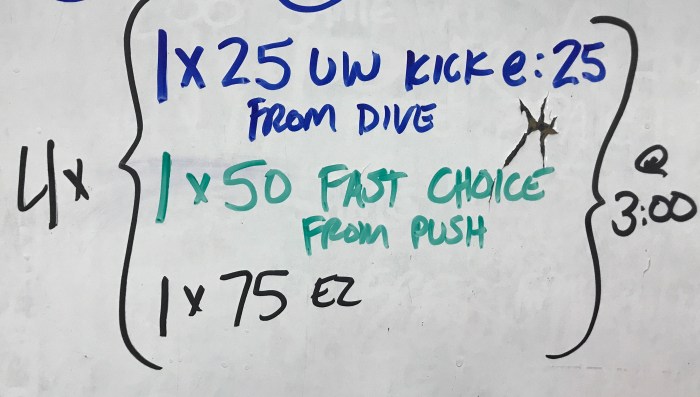 1 x 25 UW KICK @ :25
FROM DIVE
4x
1 x 50 FAST CHOICE
FROM PUSH
@
3:00
1 x 75 EZ